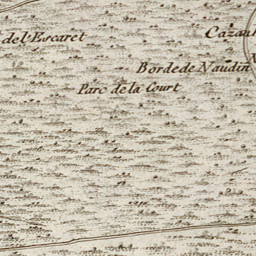 de l'Escaret
Borde de Naudin
Parc de la Court